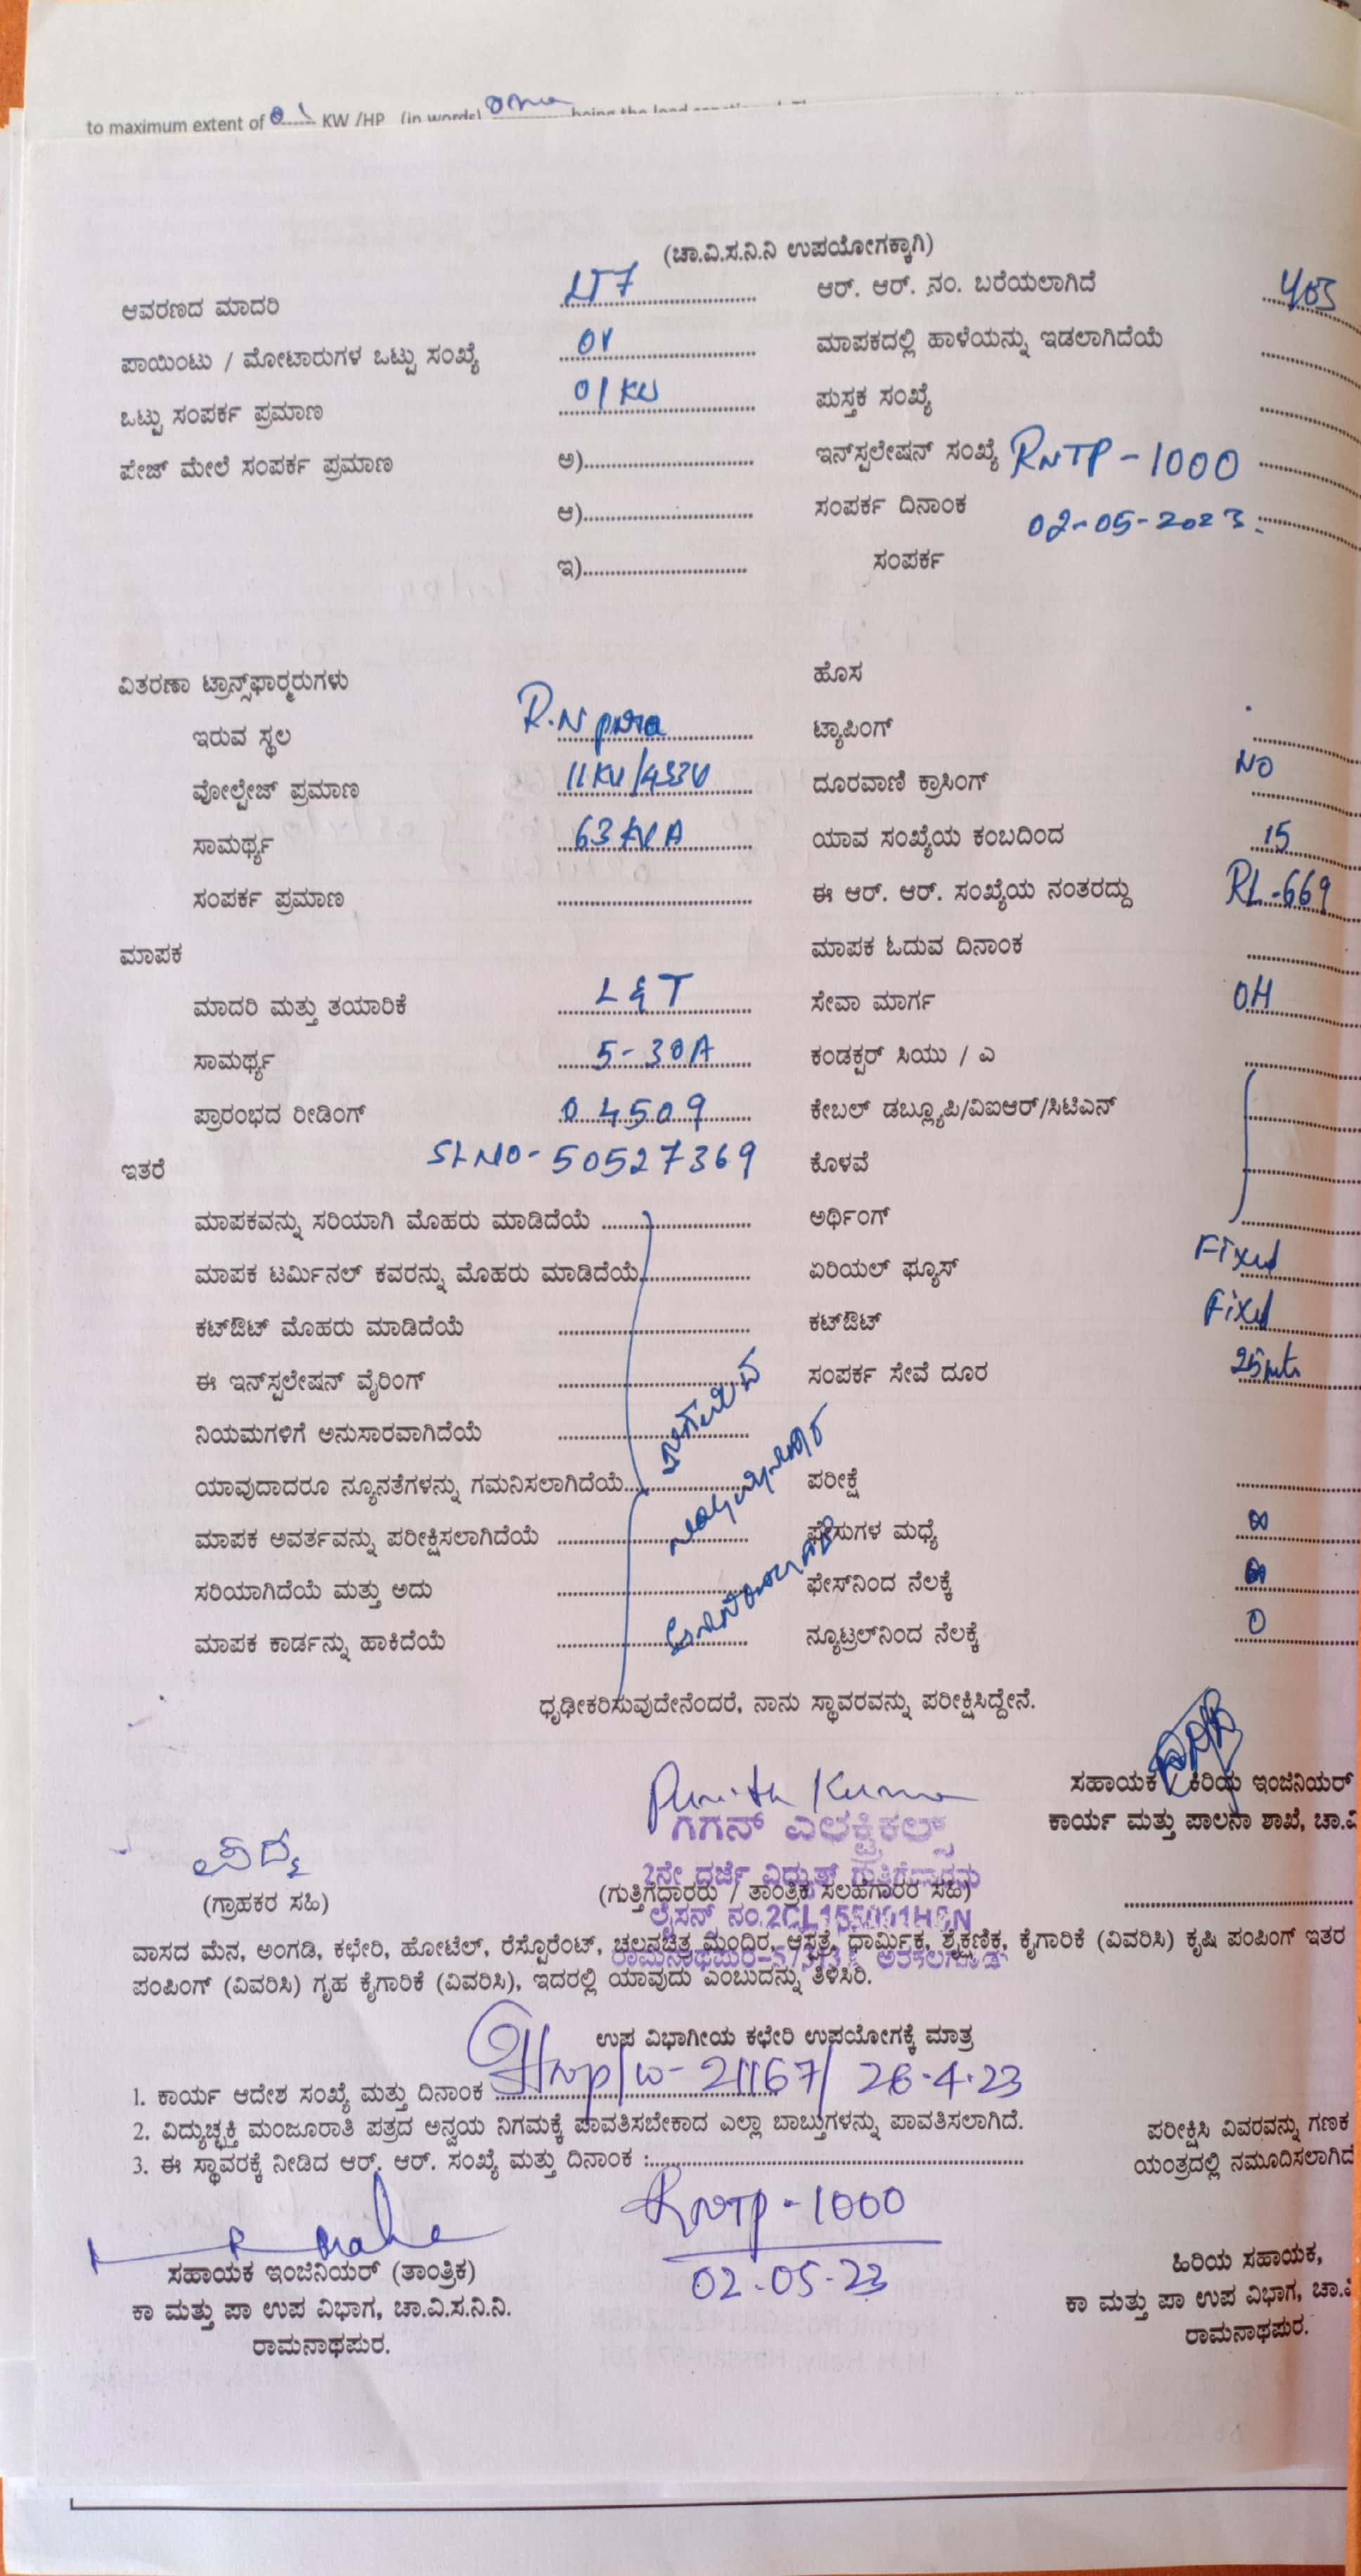 to maximum extent of 01 KW /HP (in words) one being the load
(ಚಾ.ವಿ.ಸ.ನಿ.ನಿ ಉಪಯೋಗಕ್ಕಾಗಿ)
ಆವರಣದ ಮಾದರಿ LT7 ಆರ್. ಆರ್. ನಂ. ಬರೆಯಲಾಗಿದೆ 403
ಪಾಯಿಂಟು / ಮೋಟಾರುಗಳ ಒಟ್ಟು ಸಂಖ್ಯೆ 01 ಮಾಪಕದಲ್ಲಿ ಹಾಳೆಯನ್ನು ಇಡಲಾಗಿದೆಯೆ
ಒಟ್ಟು ಸಂಪರ್ಕ ಪ್ರಮಾಣ 01 KW ಪುಸ್ತಕ ಸಂಖ್ಯೆ
ಪೇಜ್ ಮೇಲೆ ಸಂಪರ್ಕ ಪ್ರಮಾಣ ಅ) ಇನ್‌ಸ್ಪಲೇಷನ್ ಸಂಖ್ಯೆ RNTP - 1000
ಆ) ಸಂಪರ್ಕ ದಿನಾಂಕ 02-05-2023
ಇ) ಸಂಪರ್ಕ
ವಿತರಣಾ ಟ್ರಾನ್ಸ್‌ಫಾರ್‍ಮರುಗಳು ಹೊಸ
ಇರುವ ಸ್ಥಲ R.N pura ಟ್ಯಾಪಿಂಗ್
ವೋಲ್ಟೇಜ್ ಪ್ರಮಾಣ 11KV/433V ದೂರವಾಣಿ ಕ್ರಾಸಿಂಗ್ NO
ಸಾಮರ್ಥ್ಯ 63 KVA ಯಾವ ಸಂಖ್ಯೆಯ ಕಂಬದಿಂದ 15
ಸಂಪರ್ಕ ಪ್ರಮಾಣ ಈ ಆರ್. ಆರ್. ಸಂಖ್ಯೆಯ ನಂತರದ್ದು RL-669
ಮಾಪಕ ಮಾಪಕ ಓದುವ ದಿನಾಂಕ
ಮಾದರಿ ಮತ್ತು ತಯಾರಿಕೆ L & T ಸೇವಾ ಮಾರ್ಗ OH
ಸಾಮರ್ಥ್ಯ 5-30A ಕಂಡಕ್ಟರ್ ಸಿಯು / ಎ
ಪ್ರಾರಂಭದ ರೀಡಿಂಗ್ 04509 ಕೇಬಲ್ ಡಬ್ಲ್ಯೂಪಿ/ವಿಐಆರ್/ಸಿಟಿಎನ್
ಇತರೆ SL NO - 50527369 ಕೊಳವೆ
ಮಾಪಕವನ್ನು ಸರಿಯಾಗಿ ಮೊಹರು ಮಾಡಿದೆಯೆ ಅರ್ಥಿಂಗ್
ಮಾಪಕ ಟರ್ಮಿನಲ್ ಕವರನ್ನು ಮೊಹರು ಮಾಡಿದೆಯೆ ಏರಿಯಲ್ ಫ್ಯೂಸ್ Fixed
ಕಟ್‌ಔಟ್ ಮೊಹರು ಮಾಡಿದೆಯೆ ಕಟ್‌ಔಟ್ Fixed
ಈ ಇನ್‌ಸ್ಪಲೇಷನ್ ವೈರಿಂಗ್ ಸಂಪರ್ಕ ಸೇವೆ ದೂರ 25 mts
ನಿಯಮಗಳಿಗೆ ಅನುಸಾರವಾಗಿದೆಯೆ
ಯಾವುದಾದರೂ ನ್ಯೂನತೆಗಳನ್ನು ಗಮನಿಸಲಾಗಿದೆಯೆ ಪರೀಕ್ಷೆ
ಮಾಪಕ ಅವರ್ತವನ್ನು ಪರೀಕ್ಷಿಸಲಾಗಿದೆಯೆ ಫೇಸುಗಳ ಮಧ್ಯೆ ∞
ಸರಿಯಾಗಿದೆಯೆ ಮತ್ತು ಅದು ಫೇಸ್‌ನಿಂದ ನೆಲಕ್ಕೆ
ಮಾಪಕ ಕಾರ್ಡನ್ನು ಹಾಕಿದೆಯೆ ನ್ಯೂಟ್ರಲ್‌ನಿಂದ ನೆಲಕ್ಕೆ 0
ಧೃಢೀಕರಿಸುವುದೇನೆಂದರೆ, ನಾನು ಸ್ಥಾವರವನ್ನು ಪರೀಕ್ಷಿಸಿದ್ದೇನೆ.
Punith Kumar
ಸಹಾಯಕ / ಕಿರಿಯ ಇಂಜಿನಿಯರ್
ಗಗನ್ ಎಲೆಕ್ಟ್ರಿಕಲ್ಸ್
ಕಾರ್ಯ ಮತ್ತು ಪಾಲನಾ ಶಾಖೆ, ಚಾ.ವಿ
2ನೇ ದರ್ಜೆ ವಿದ್ಯುತ್ ಗುತ್ತಿಗೆದಾರರು
(ಗ್ರಾಹಕರ ಸಹಿ) (ಗುತ್ತಿಗೆದಾರರು / ತಾಂತ್ರಿಕ ಸಲಹೆಗಾರರ ಸಹಿ)
ಲೈಸನ್ಸ್ ನಂ.2CL155001HSN
ವಾಸದ ಮನೆ, ಅಂಗಡಿ, ಕಛೇರಿ, ಹೋಟೆಲ್, ರೆಸ್ಟೋರೆಂಟ್, ಚಲನಚಿತ್ರ ಮಂದಿರ, ಆಸ್ಪತ್ರೆ, ಧಾರ್ಮಿಕ, ಶೈಕ್ಷಣಿಕ, ಕೈಗಾರಿಕೆ (ವಿವರಿಸಿ) ಕೃಷಿ ಪಂಪಿಂಗ್ ಇತರ
ಪಂಪಿಂಗ್ (ವಿವರಿಸಿ) ಗೃಹ ಕೈಗಾರಿಕೆ (ವಿವರಿಸಿ), ಇದರಲ್ಲಿ ಯಾವುದು ಎಂಬುದನ್ನು ತಿಳಿಸಿರಿ.
ಉಪ ವಿಭಾಗೀಯ ಕಛೇರಿ ಉಪಯೋಗಕ್ಕೆ ಮಾತ್ರ
1. ಕಾರ್ಯ ಆದೇಶ ಸಂಖ್ಯೆ ಮತ್ತು ದಿನಾಂಕ 21167/ 26.4.23
2. ವಿದ್ಯುಚ್ಛಕ್ತಿ ಮಂಜೂರಾತಿ ಪತ್ರದ ಅನ್ವಯ ನಿಗಮಕ್ಕೆ ಪಾವತಿಸಬೇಕಾದ ಎಲ್ಲಾ ಬಾಬ್ತುಗಳನ್ನು ಪಾವತಿಸಲಾಗಿದೆ. ಪರೀಕ್ಷಿಸಿ ವಿವರವನ್ನು ಗಣಕ
3. ಈ ಸ್ಥಾವರಕ್ಕೆ ನೀಡಿದ ಆರ್. ಆರ್. ಸಂಖ್ಯೆ ಮತ್ತು ದಿನಾಂಕ : ಯಂತ್ರದಲ್ಲಿ ನಮೂದಿಸಲಾಗಿದೆ
RNTP - 1000
02-05-23
ಸಹಾಯಕ ಇಂಜಿನಿಯರ್ (ತಾಂತ್ರಿಕ) ಹಿರಿಯ ಸಹಾಯಕ,
ಕಾ ಮತ್ತು ಪಾ ಉಪ ವಿಭಾಗ, ಚಾ.ವಿ.ಸ.ನಿ.ನಿ. ಕಾ ಮತ್ತು ಪಾ ಉಪ ವಿಭಾಗ, ಚಾ.ವಿ
ರಾಮನಾಥಪುರ. ರಾಮನಾಥಪುರ.